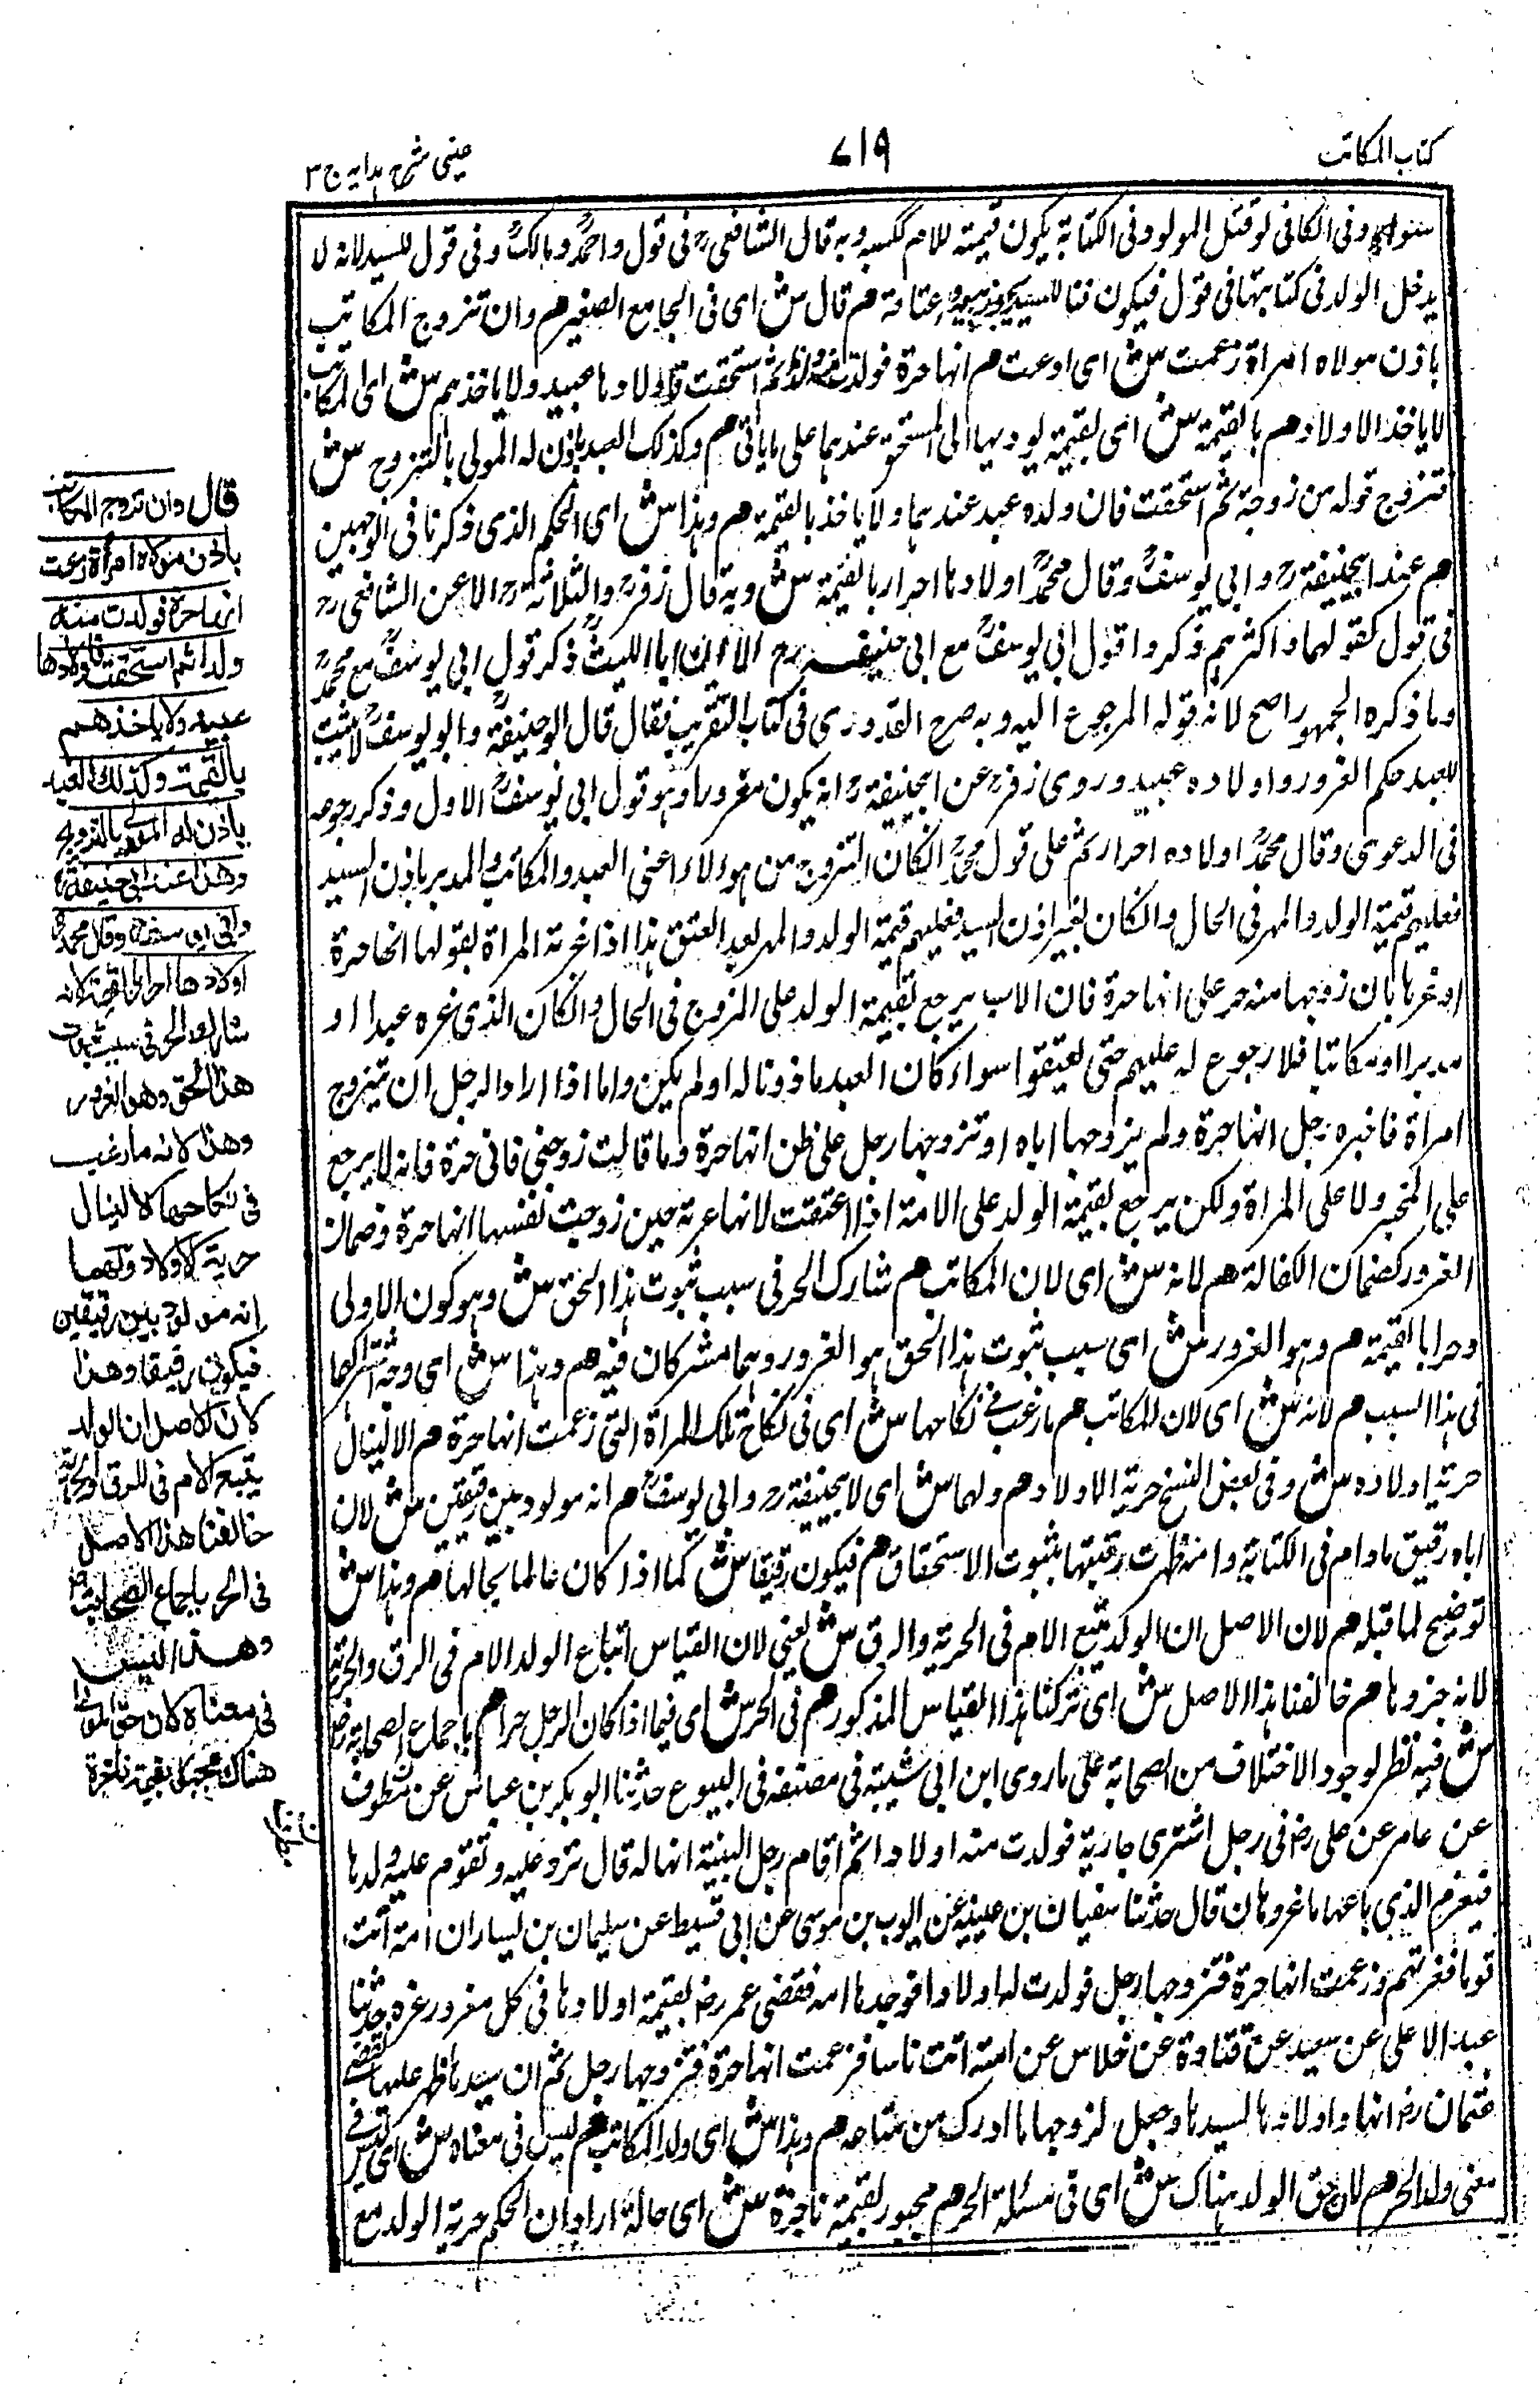 كتاب المكاتب
٧١٩
عينى شرح هدايه ج ٣
سواء وفى الكافى لو قتل المولود فى الكتابة يكون قيمته للام ككسبه وبه قال الشافعى رح فى قول واحمد ومالك وفى قول للسيد لانه لا
يدخل الولد فى كتابتها فى قول فيكون قنا للسيد يجوز بيعه واعتاقه هم قال ش اى فى الجامع الصغير هم وان تزوج المكاتب
باذن مولاه امرأة زعمت ش اى ادعت م انها حرة فولدت منه ولدا ثم استحقت فاولادها عبيد ولا ياخذهم ش اى المكاتب
لا ياخذ الاولاد هم بالقيمة ش اى بقيمة يوديها الى المستحق عندهما على ما ياتى هم وكذلك العبد ياذن له المولى بالتزوج ش
فتزوج قوله من زوجة ثم استحقت فان ولده عبد عندهما ولا ياخذ بالقيمة هم وهذا ش اى الحكم الذى ذكرنا فى الوجهين
هم عند ابيحنيفة رح وابي يوسف وقال محمد اولادها احرار بالقيمة ش وبه قال زفر رح والثلاثة رح الا عن الشافعى رح
فى قول كقولهما واكثرهم ذكروا قول ابي يوسف مع ابى حنيفة رح الا ان ابا الليث ذكر قول ابى يوسف مع محمد
وما ذكره الجمهور اصح لانه قوله المرجوع اليه وبه صرح القدورى فى كتاب التقريب فقال قال ابو حنيفة وابو يوسف لا يثبت
للعبد حكم الغرور واولاده عبيد وروى زفر رح عن ابيحنيفة رح انه يكون مغرورا وهو قول ابى يوسف الاول وذكر رجوعه
فى الدعوى وقال محمد اولاده احرار ثم على قول محمد ان كان التزوج من هولاء اعنى العبد والمكاتب والمدبر باذن السيد
فعليهم قيمة الولد والمهر فى الحال وان كان بغير اذن السيد فعليهم قيمة الولد والمهر بعد العتق هذا اذا غرته المرأة بقولها انها حرة
او غرها بان زوجها منه حر على انها حرة فان الاب يرجع بقيمة الولد على المزوج فى الحال وان كان الذى غره عبدا او
مدبرا او مكاتبا فلا رجوع له عليهم حتى يعتقوا سواء كان العبد ماذونا له او لم يكن واما اذا اراد الرجل ان يتزوج
امرأة فاخبره رجل انها حرة ولم يزوجها اياه او تزوجها رجل على ظن انها حرة وما قالت زوجنى فانى حرة فانه لا يرجع
على المخبر ولا على المرأة ولكن يرجع بقيمة الولد على الامة اذا اعتقت لانها غرته حين زوجت نفسها انها حرة وضمان
الغرور كضمان الكفالة هم لانه ش اى لان المكاتب هم شارك الحر فى سبب ثبوت هذا الحق ش وهو كون الاولى
وحرا بالقيمة هم وهو الغرور ش اى سبب ثبوت هذا الحق هو الغرور وهما مشتركان فيه هم وهذا ش اى وجه اشتراكهما
فى هذا السبب هم لانه ش اى لان المكاتب هم ما رغب فى نكاحها ش اى فى نكاح تلك المرأة التى زعمت انها حرة هم الا لينال
حرية اولاده ش وفى بعض النسخ حرية الاولاد هم ولهما ش اى لابيحنيفة رح وابى يوسف هم انه مولود بين رقيقين ش لان
اباه رقيق مادام فى الكتابة وامه ظهرت رقيتها بثبوت الاستحقاق هم فيكون رقيقا ش كما اذا كان عالما بحالها هم وهذا ش
توضيح لما قبله هم لان الاصل ان الولد يتبع الام فى الحرية والرق ش يعنى لان القياس اتباع الولد الام فى الرق والحرية
لانه جزوها هم خالفنا هذا الاصل ش اى تركنا هذا القياس المذكور هم فى الحر ش اى فيما اذا كان الرجل حرا هم باجماع الصحابة رض
ش فيه نظر لوجود الاختلاف من الصحابة على ما روى ابن ابى شيبة فى مصنفه فى البيوع حدثنا ابو بكر بن عياش عن مطرف
عن عامر عن على رض فى رجل اشترى جارية فولدت منه اولادا ثم اقام رجل البينة انها له قال ترد عليه وتقوم عليه ولدها
فيغرم الذى باعها ما غروهان قال حدثنا سفيان بن عيينه عن ايوب بن موسى عن ابى قسيط عن سليمان بن يسار ان امة اتت
قوما فغرتهم وزعمت انها حرة فتزوجها رجل فولدت له اولادا فوجدها امة فقضى عمر رض بقيمة اولادها فى كل مغرور غره حدثنا
عبد الاعلى عن سعيد عن قتادة عن خلاس عن امة اتت ناسا فزعمت انها حرة فتزوجها رجل ثم ان سيدها ظهر عليها فقضى
عثمان رض انها واولادها لسيدها وجعل لزوجها ما ادرك من متاعه هم وهذا ش اى ولد المكاتب هم ليس فى معناه ش اى ليس فى
معنى ولد الحر هم لان حق الولد هناك ش اى فى مسئلة الحر هم مجبور بقيمة ناجزة ش اى حالة اراد ان الحكم حرية الولد مع
قال وان تزوج المكاتب
باذن مولاه امرأة زعمت
انها حرة فولدت منه
ولدا ثم استحقت فاولادها
عبيد ولا ياخذهم
بالقيمة وكذلك العبد
ياذن له المولى بالتزويج
وهذا عند ابى حنيفة
وابى يوسف وقال محمد
اولادها احرار بالقيمة لانه
شارك الحر فى سبب ثبوت
هذا الحق وهو الغرور
وهذا لانه ما رغب
فى نكاحها الا لينال
حرية الاولاد ولهما
انه مولود بين رقيقين
فيكون رقيقا وهذا
لان الاصل ان الولد
يتبع الام فى الرق والحرية
خالفنا هذا الاصل
فى الحر باجماع الصحابة رض
وهذا ليس
فى معناه لان حق المولى
هناك مجبور بقيمة ناجزة